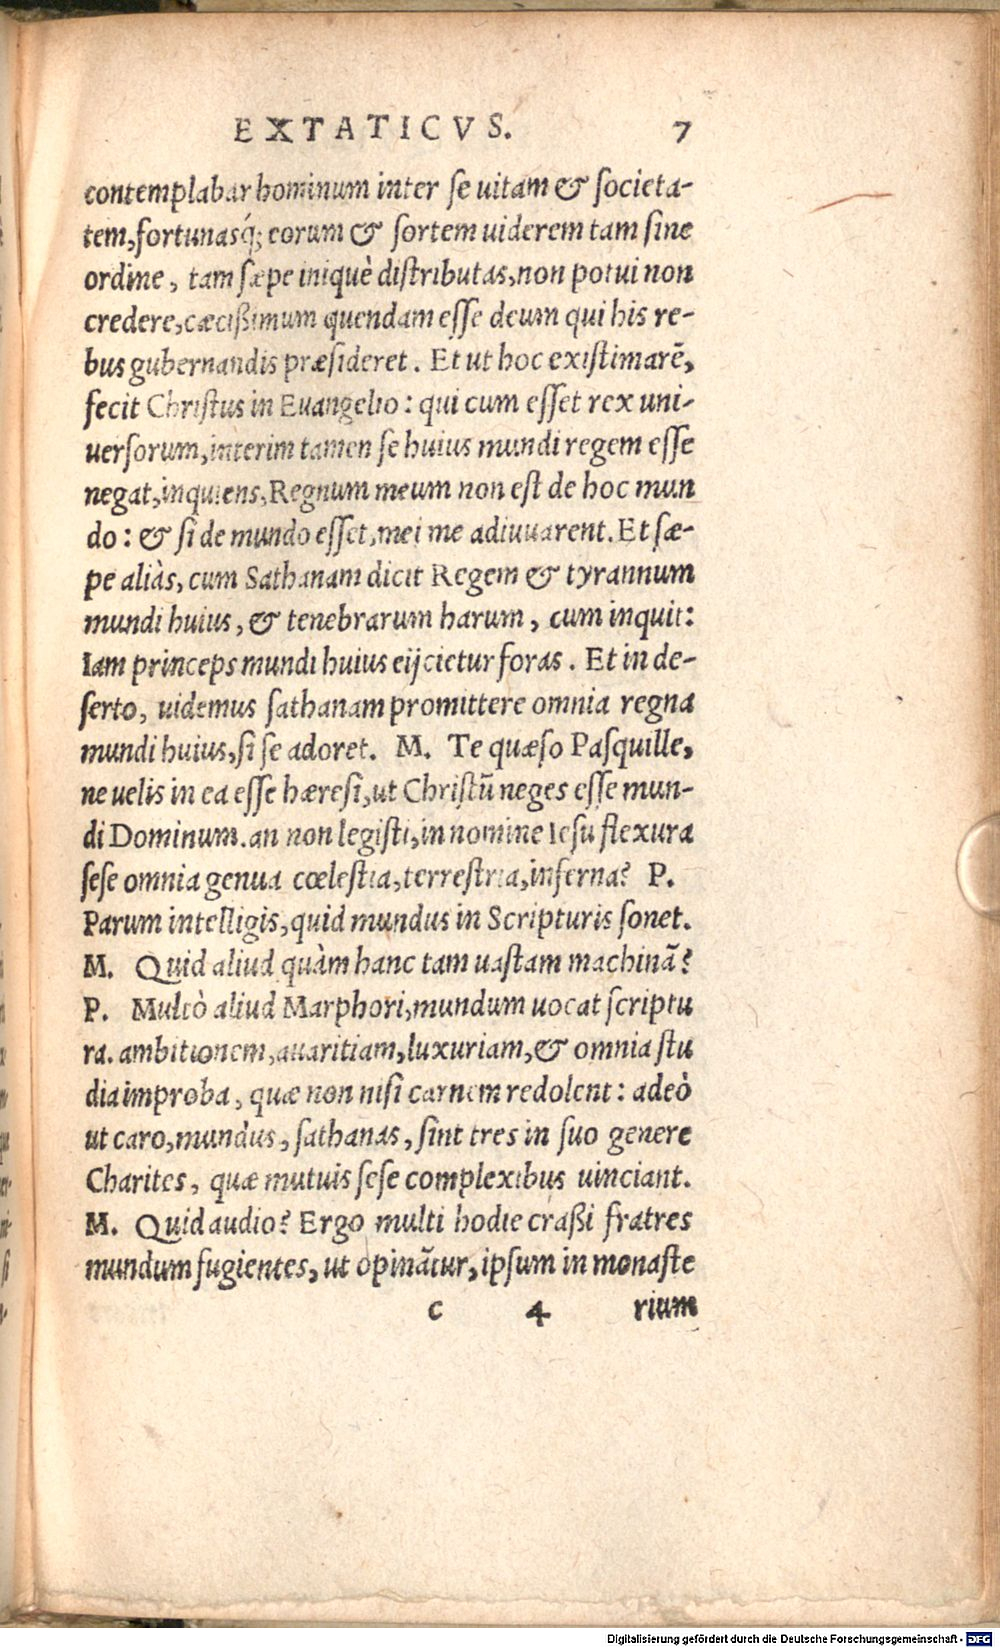 EXTATICVS. 7
contemplabar hominum inter se uitam & societa-
tem, fortunasq́; eorum & sortem uiderem tam sine
ordine, tam sæpe iniquè distributas, non potui non
credere, cæcißimum quendam esse deum qui his re-
bus gubernandis præsideret. Et ut hoc existimarẽ,
fecit Christus in Euangelio: qui cum esset rex uni-
uersorum, interim tamen se huius mundi regem esse
negat, inquiens, Regnum meum non est de hoc mun
do: & si de mundo esset, mei me adiuuarent. Et sæ-
pe aliàs, cum Sathanam dicit Regem & tyrannum
mundi huius, & tenebrarum harum, cum inquit:
Iam princeps mundi huius eijcietur foras. Et in de-
serto, uidemus sathanam promittere omnia regna
mundi huius, si se adoret. M. Te quæso Pasquille,
ne uelis in ea esse hæresi, ut Christũ neges esse mun-
di Dominum. an non legisti, in nomine Iesu flexura
sese omnia genua cœlestia, terrestria, inferna? P.
Parum intelligis, quid mundus in Scripturis sonet.
M. Quid aliud quàm hanc tam uastam machinã?
P. Multò aliud Marphori, mundum uocat scriptu
ra. ambitionem, auaritiam, luxuriam, & omnia stu
dia improba, quæ non nisi carnem redolent: adeò
ut caro, mundus, sathanas, sint tres in suo genere
Charites, quæ mutuis sese complexibus uinciant.
M. Quid audio? Ergo multi hodie craßi fratres
mundum fugientes, ut opinãtur, ipsum in monaste
c 4 rium
Digitalisierung gefördert durch die Deutsche Forschungsgemeinschaft - DFG